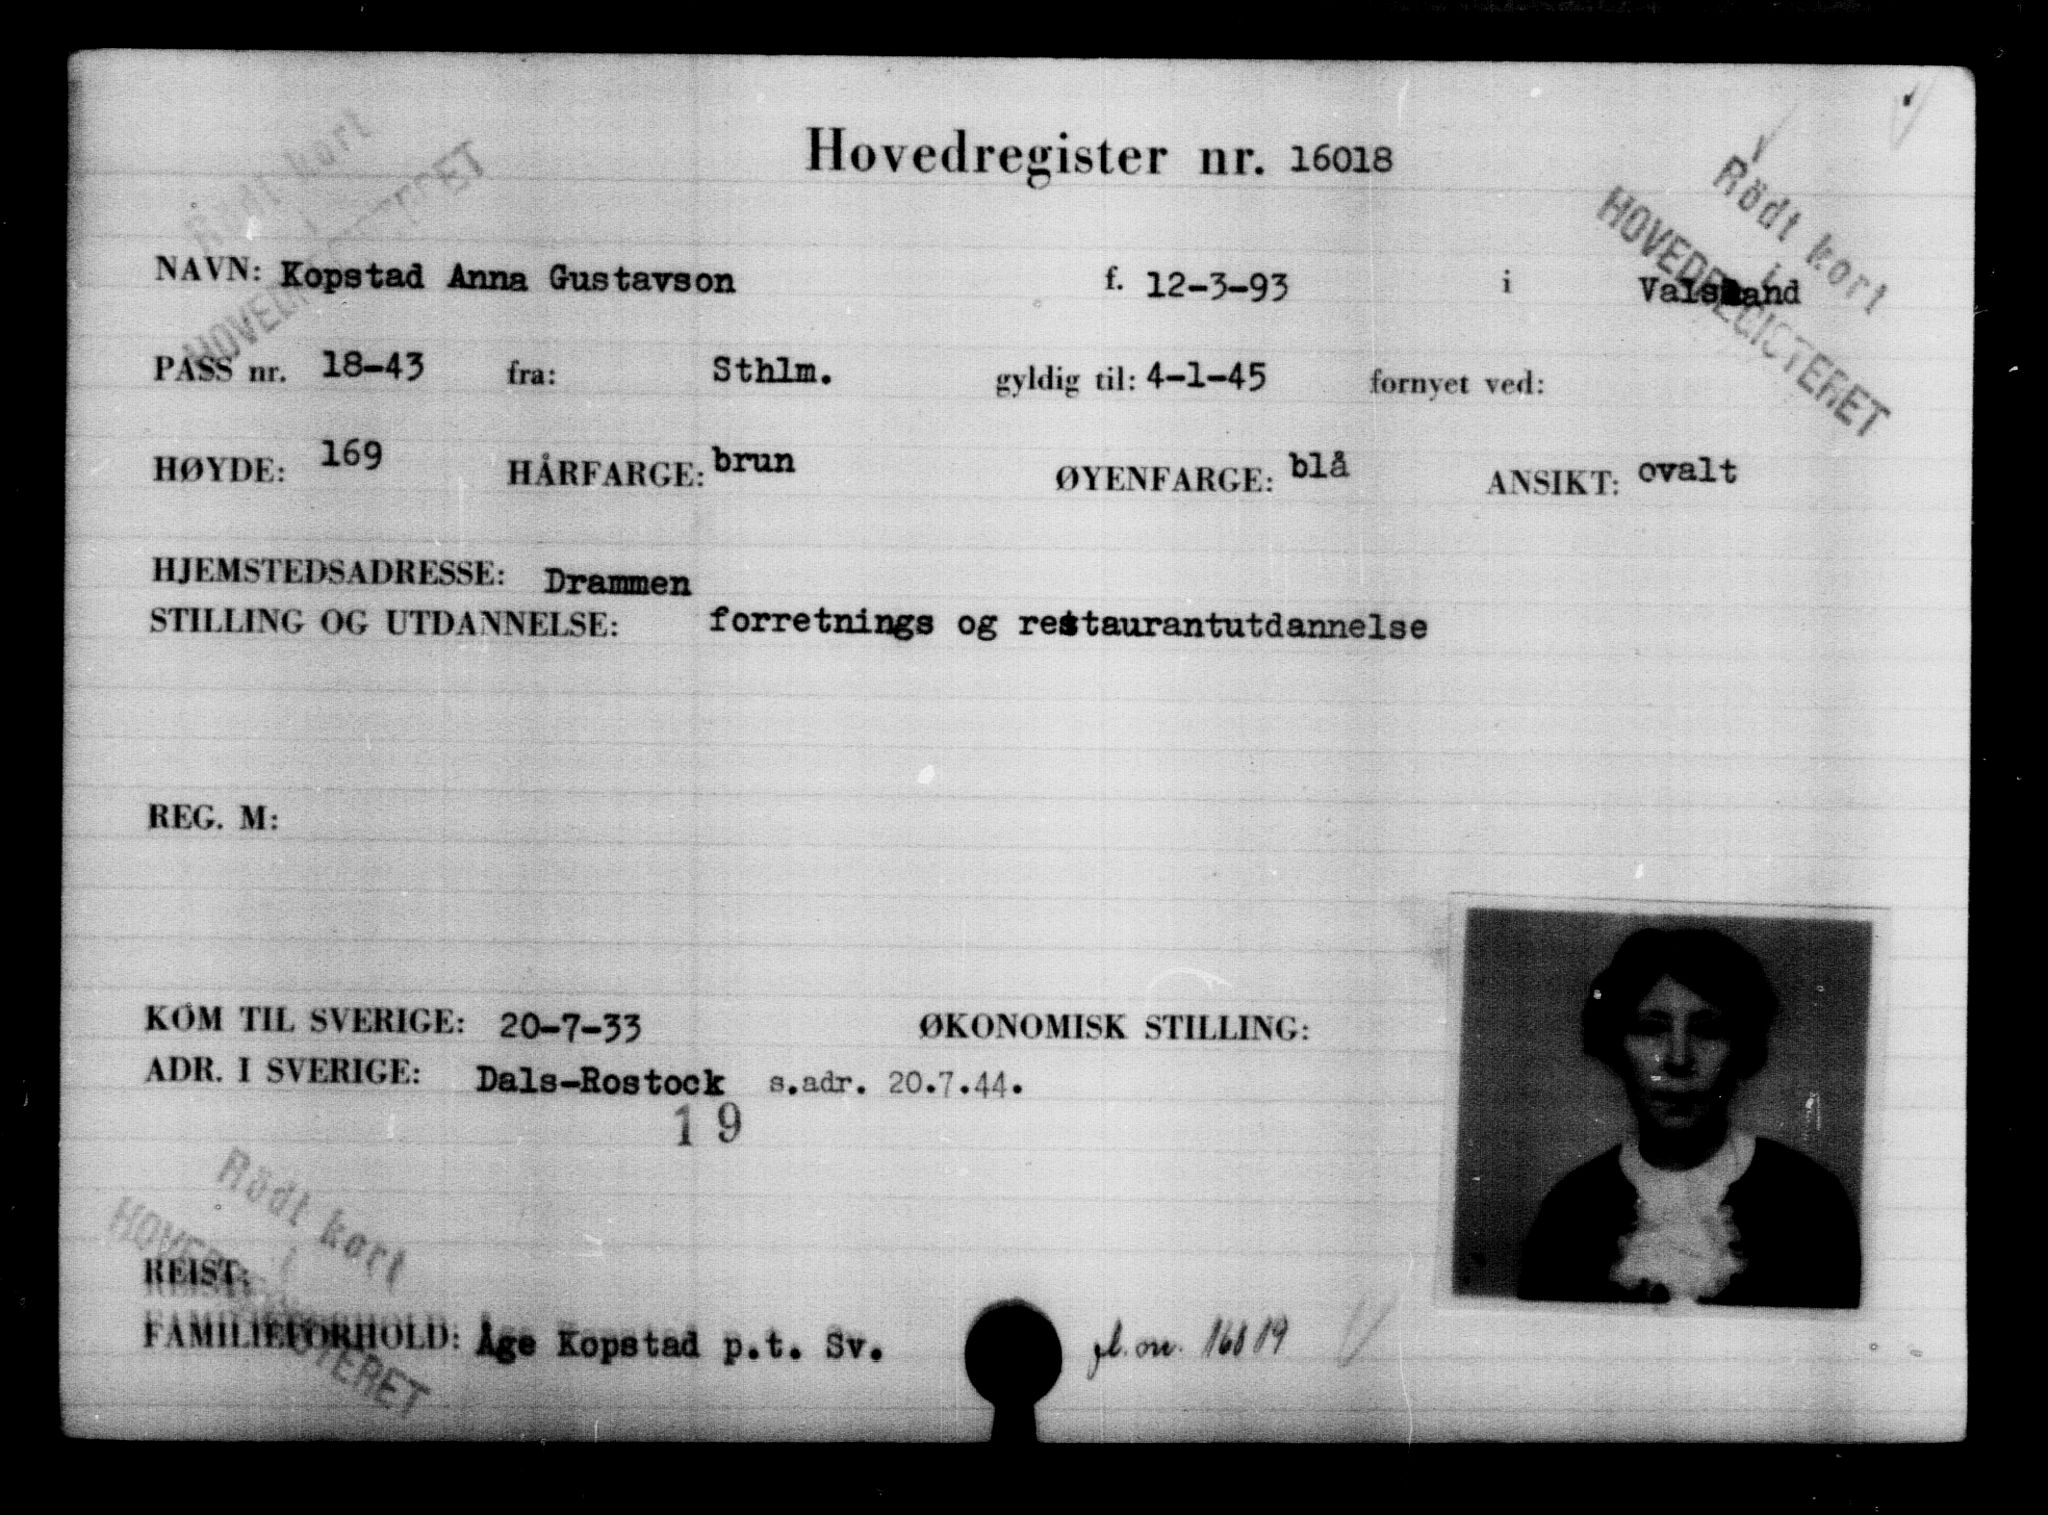 Hovedregister nr. 16018
Rödt kort
i
HOVEDREGISTERET
Rödt kort
i
HOVEDREGISTERET
NAVN: Kopstad Anna Gustavson f. 12-3-93 i
PASS nr. 18-43 fra: Sthlm. gyldig til: 4-1-45 fornyet ved:
HØYDE: 169 HÅRFARGE: brun ØYENFARGE: blå ANSIKT: ovalt
HJEMSTEDSADRESSE: Drammen
STILLING OG UTDANNELSE: forretnings og restaurantutdannelse
REG. M:
KOM TIL SVERIGE: 20-7-33 ØKONOMISK STILLING:
ADR. I SVERIGE: Dals-Rostock s.adr. 20.7.44.
19
Rödt kort
i
HOVEDREGISTERET
REIST:
FAMILIEFORHOLD: Åge Kopstad p.t. Sv.